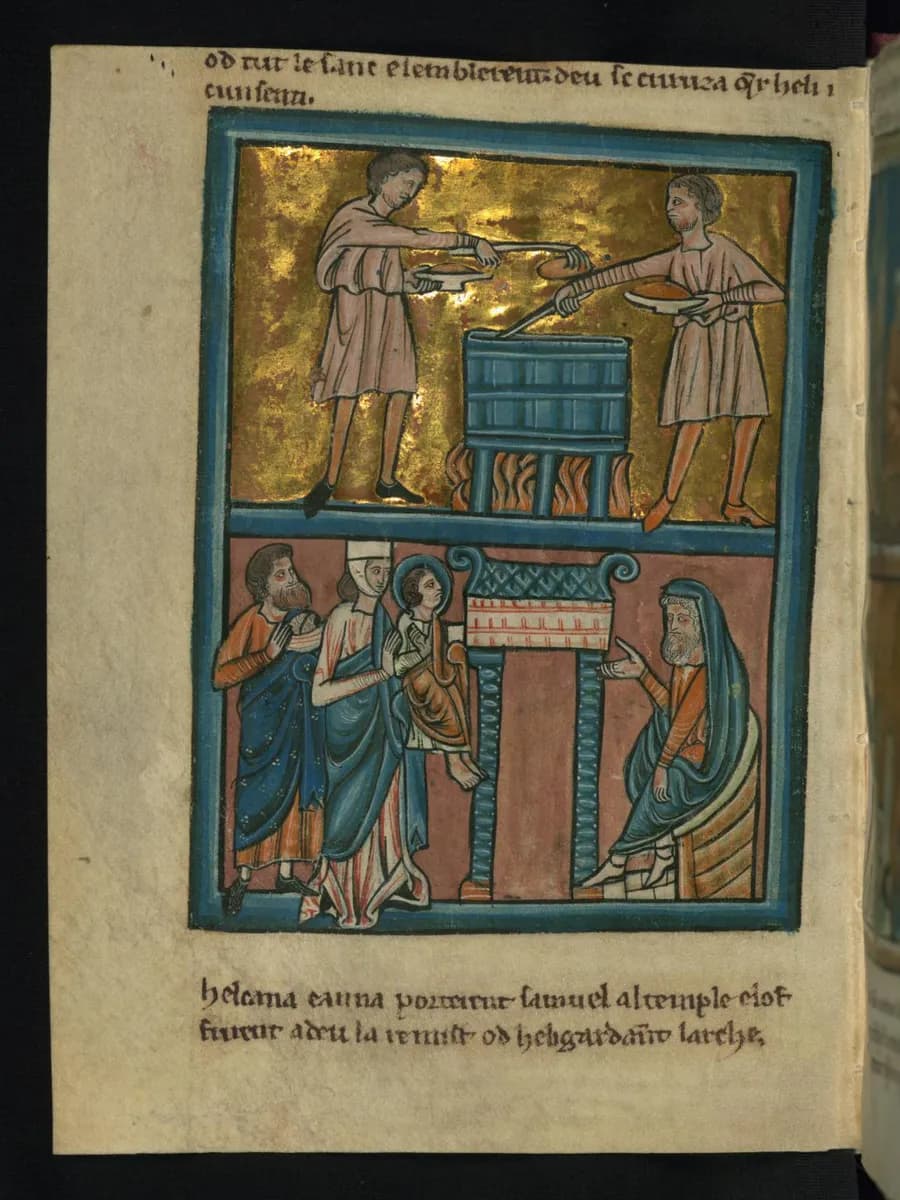 od tut le sanc e lembleteut deu se ciuuza
cunsenti.
helcana eauna porterent samuel altemple elof
frirent adeu la remist od heligardant larche.